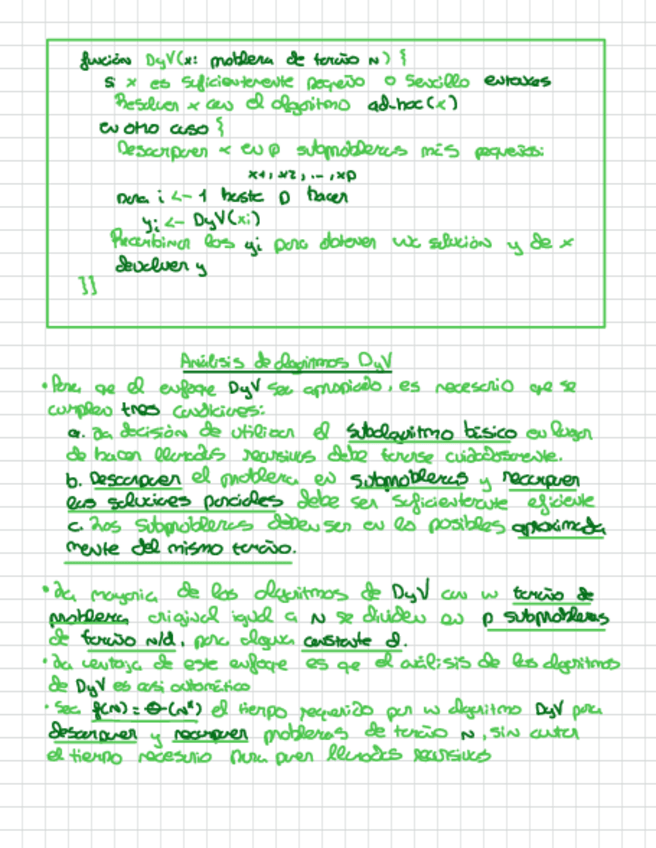 función DyV(x: problema de tamaño N) {
si x es suficientemente pequeño o sencillo entonces
Resolver x con el algoritmo ad-hoc(x)
en otro caso {
Descomponer x en p subproblemas más pequeños:
x1, x2, ..., xp
para i <- 1 hasta p hacer
yi <- DyV(xi)
Recombinar los yi para obtener una solución y de x
devolver y
}}
Análisis de algoritmos DyV
• Para que el enfoque DyV sea apropiado, es necesario que se
cumplan tres condiciones:
a. La decisión de utilizar el subalgoritmo básico en lugar
de hacer llamadas recursivas debe tomarse cuidadosamente.
b. Descomponer el problema en subproblemas y recomponer
las soluciones parciales debe ser suficientemente eficiente
c. Los subproblemas deben ser en lo posibles aproximada
mente del mismo tamaño.
• La mayoría de los algoritmos de DyV con un tamaño de
problema original igual a N se dividen en p subproblemas
de tamaño N/d, para alguna constante d.
• La ventaja de este enfoque es que el análisis de los algoritmos
de DyV es casi automático
• Sea f(N) = Θ(N^k) el tiempo requerido por un algoritmo DyV para
descomponer y recomponer problemas de tamaño N, sin contar
el tiempo necesario para llamadas recursivas